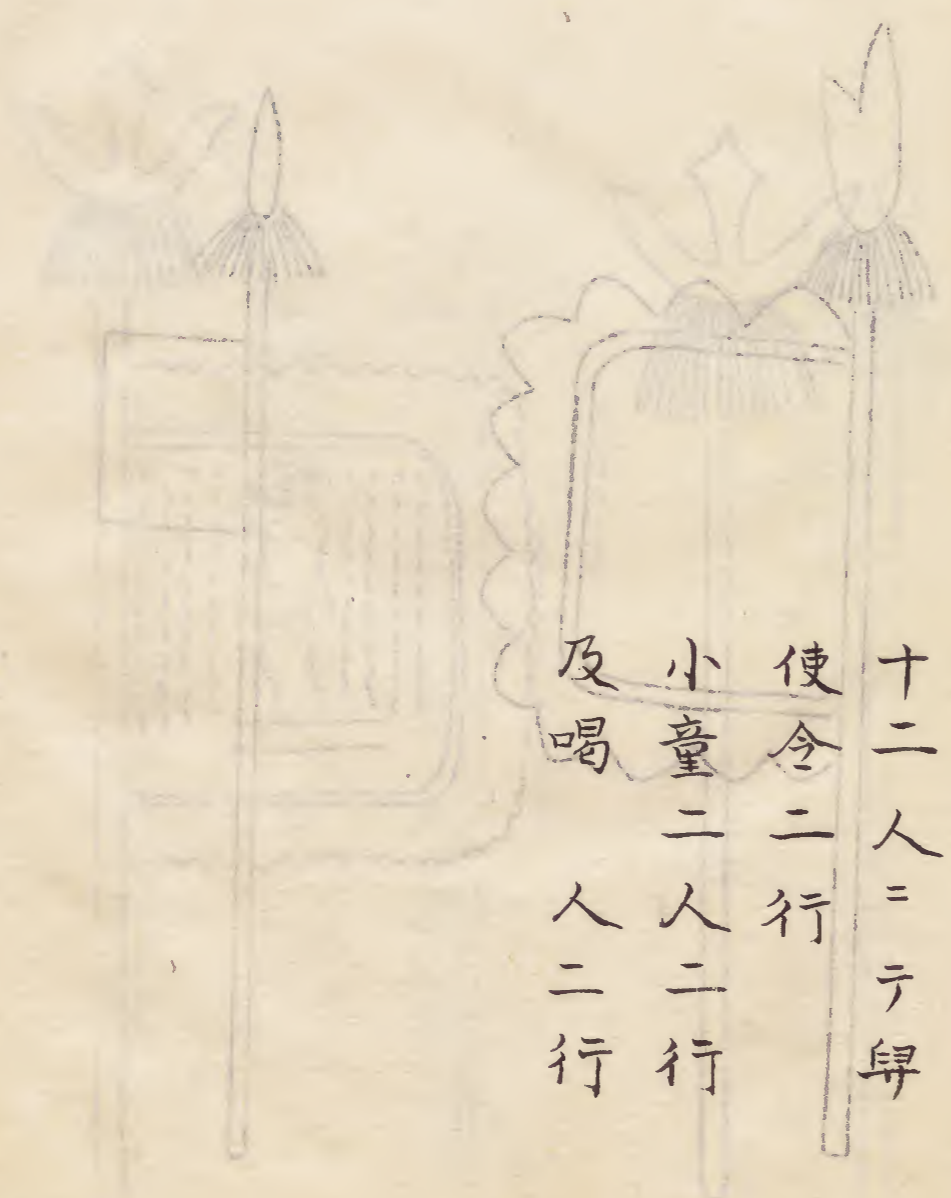 十二人二行舁
使令二行
小童二人二行
及喝人二行